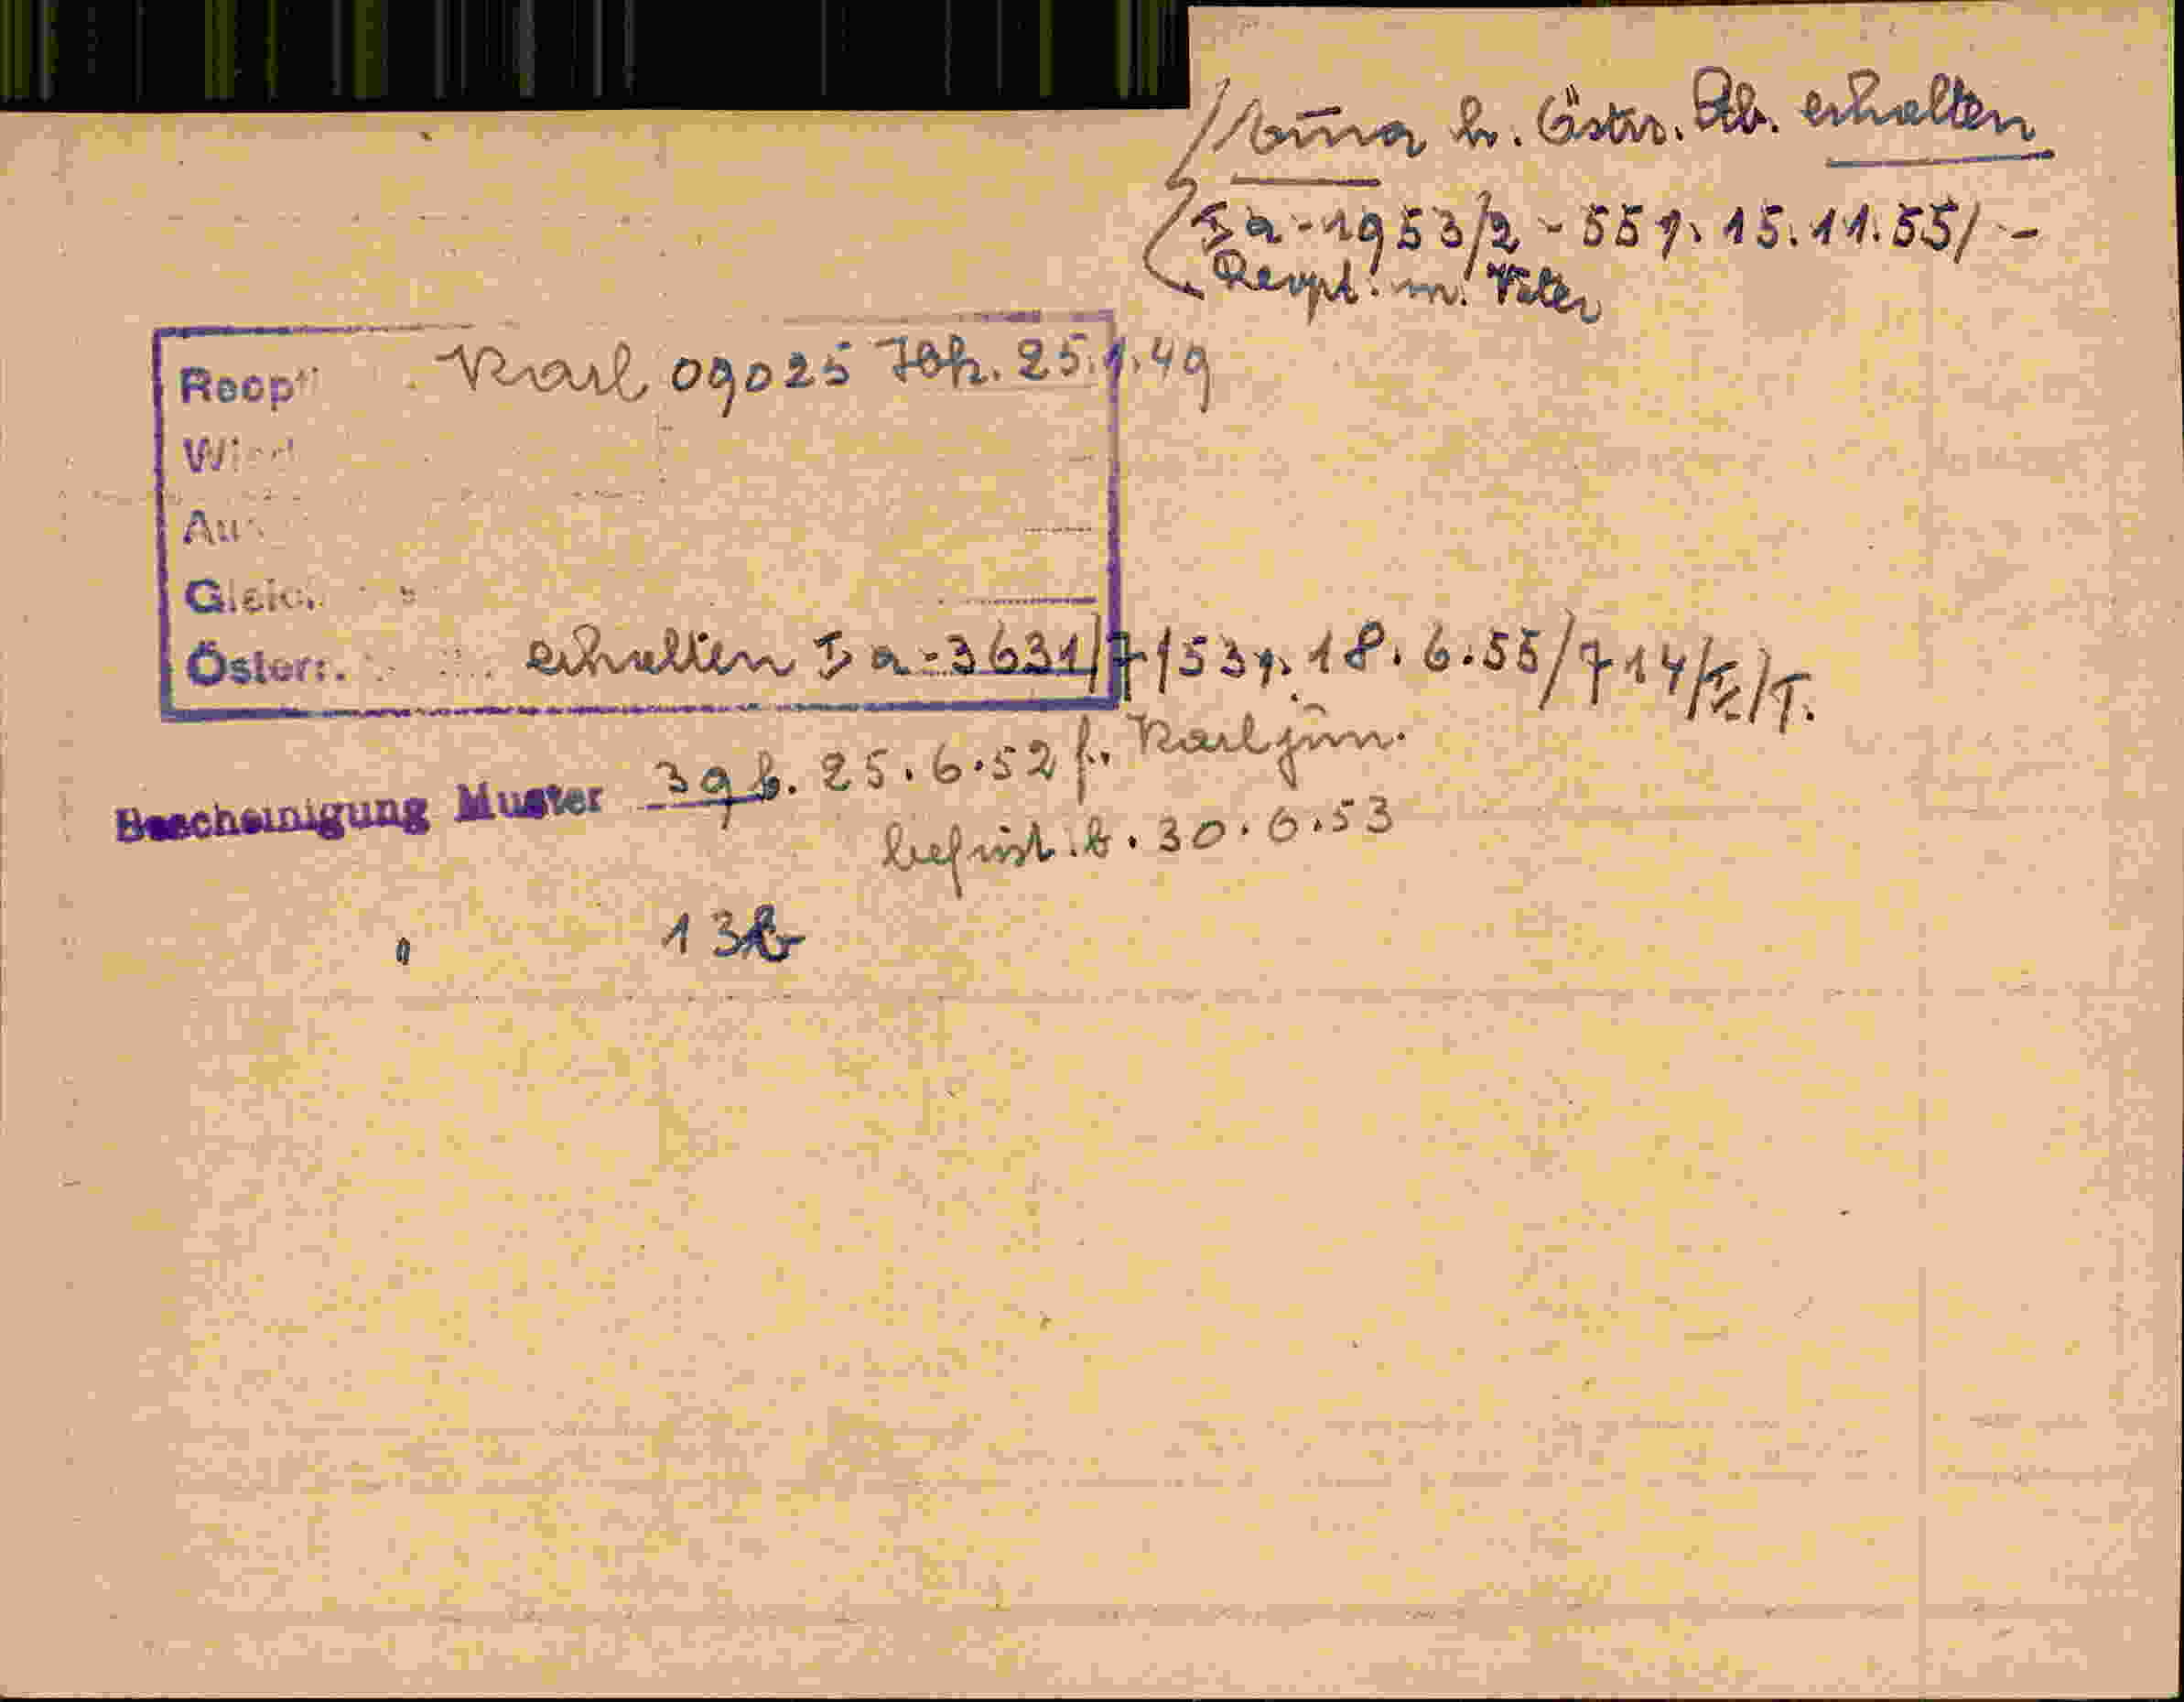 h. Östr. Stb. erhalten
Ia-1953/2-55 v. 15.11.55/-
Reopt. m. Vater
Reopti Karl 09025 Ibk. 25.1.49
Wied
Aus
Gleic
Österr. erhalten Ia-3631/7/53 v. 18.6.55/714/
Bescheinigung Muster 39 b. 25.6.52 f. Karl jun.
befrist. b. 30.6.53
" 13b